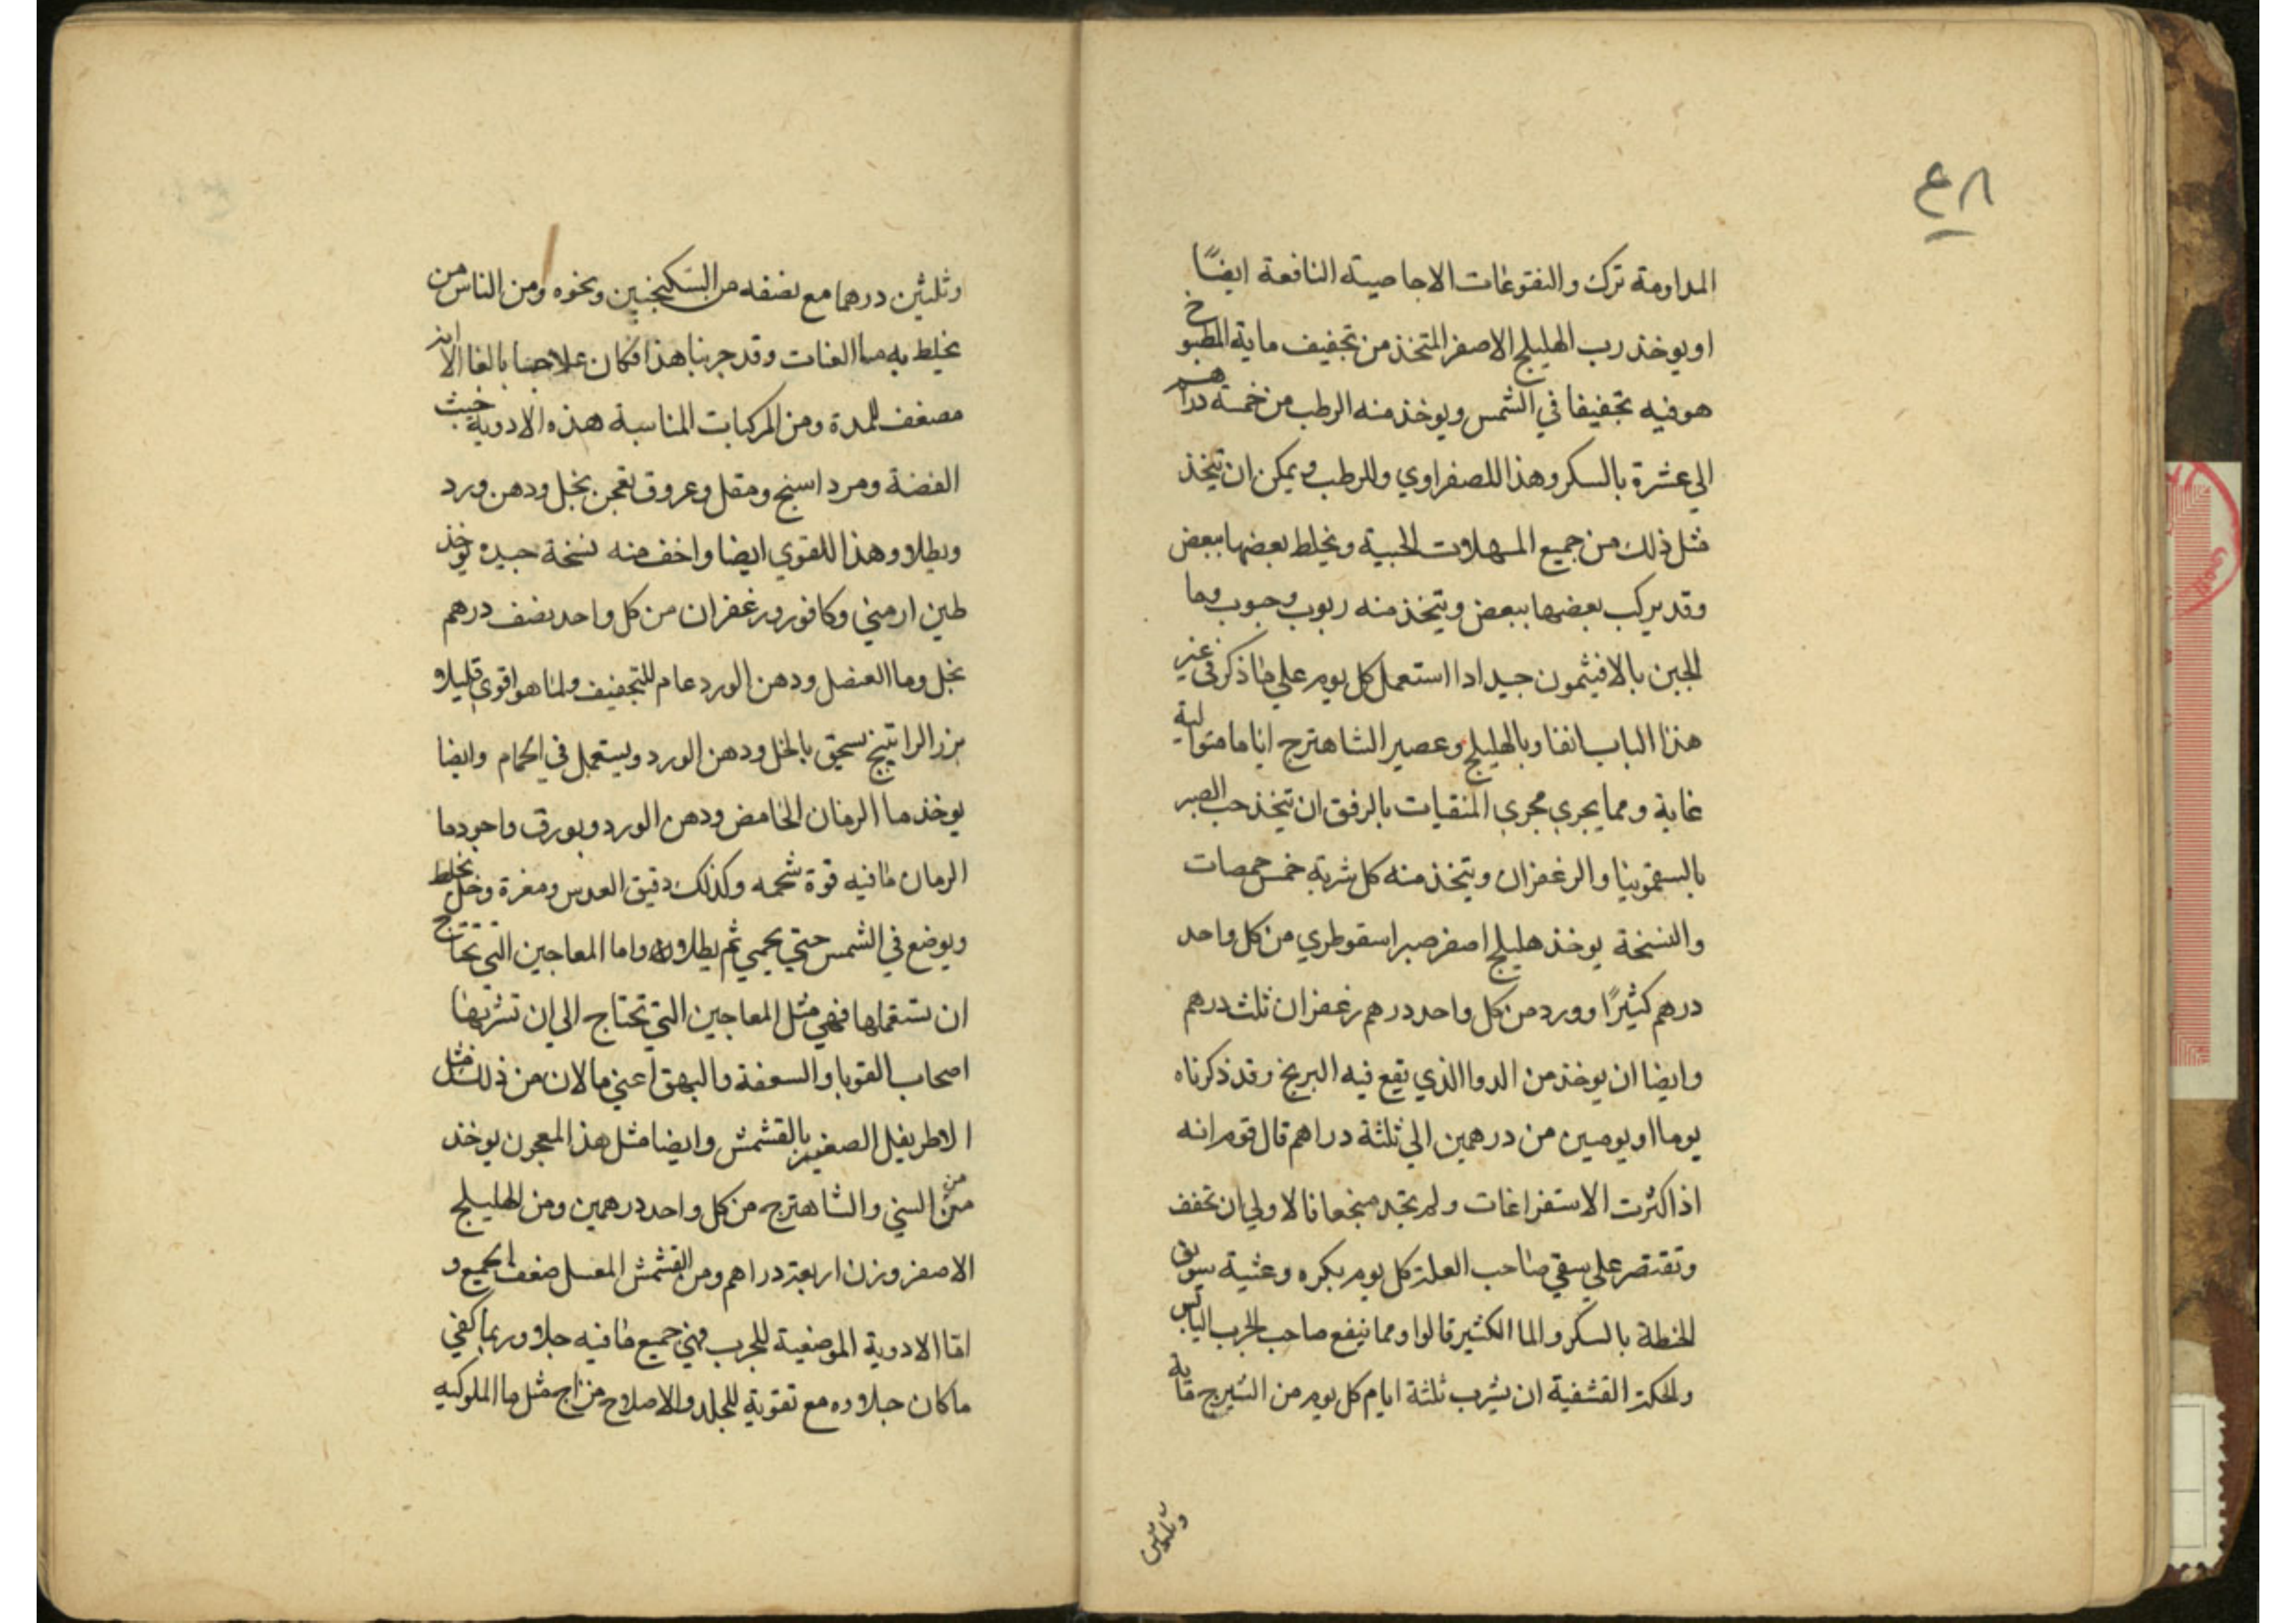 ٤٨
المداومة ترك والنقوعات الاجاصيته النافعة ايضًا
او يوخذ رب الهليلج الاصفر المتخذ من تجفيف ماية المطبوخ
هو فيه تجفيفا في الشمس ويوخذ منه الرطب من خمسة دراهم
الي عشرة بالسكر وهذا للصفراوي وللرطب ويمكن ان يتخذ
مثل ذلك من جميع المسهلات الحبية ويخلط بعضها ببعض
وقد يركب بعضها ببعض ويتخذ منه ربوب وحبوب وما
الجبن بالافيثمون جيد اذا استعمل كل يوم علي ما ذكر في غير
هذا الباب انفا وبالهليلج وعصير الشاهترج اياما متوالية
غاية ومما يجري مجري المنقيات بالرفق ان يتخذ حب الصبر
بالسقمونيا والزعفران ويتخذ منه كل شربة خمس حمصات
والنسخة يوخذ هليلج اصفر صبر اسقوطري من كل واحد
درهم كثيرًا وورد من كل واحد درهم زعفران ثلث درهم
وايضا ان يوخذ من الدوا الذي يقع فيه البرنج وقد ذكرناه
يوما او يومين من درهمين الي ثلثة دراهم قال قوم انه
اذا كثرت الاستفراغات ولم تجد منجعا فالاولي ان تخفف
وتقتصر علي سقي صاحب العلة كل يوم بكره وعشية سويق
الحنطة بالسكر والما الكثير قالوا ومما ينفع صاحب الجرب اليابس
والحكة القشفية ان يشرب ثلثة ايام كل يوم من الشيرج ماية
وثلثين
وثلثين درهما مع نصفه من السكنجبين ونحوه ومن الناس من
يخلط به ما العناب وقد جربنا هذا فكان علاجنا بالغا الا انه
مضعف للمدة ومن المركبات المناسبة هذه الادوية خبث
الفضة ومرداسنج ومقل وعروق تعجن بخل ودهن ورد
ويطلا وهذا للقوي ايضا واخف منه نسخة جيده يوخذ
طين ارمني وكافور وزعفران من كل واحد نصف درهم
بخل وما العنصل ودهن الورد عام للتجفيف ولما هو اقوي قليلا
بزر الراتينج يسحق بالخل ودهن الورد ويستعمل في الحمام وايضا
يوخذ ما الرمان الحامض ودهن الورد وبورق واجود ما
الرمان ما فيه قوة شحمه وكذلك دقيق العدس ومغرة وخل يخلط
ويوضع في الشمس حتي يحمي ثم يطلا واما المعاجين التي تحتاج
ان تستعملها فهي مثل المعاجين التي تحتاج الي ان تشربها
اصحاب القوبا والسعفة والبهق اعني ما لان من ذلك مثل
الاطريفل الصغير بالقشمش وايضا مثل هذا المعجون يوخذ
من السني والشاهترج من كل واحد درهمين ومن الهليلج
الاصفر وزن اربعة دراهم ومن القشمش المغسل ضعف الجميع و
اما الادوية الموضعية للجرب فهي جميع ما فيه جلا وربما كفي
ما كان جلاوه مع تقوية للجلد والاصلاح مزاج مثل ما الملوكيه